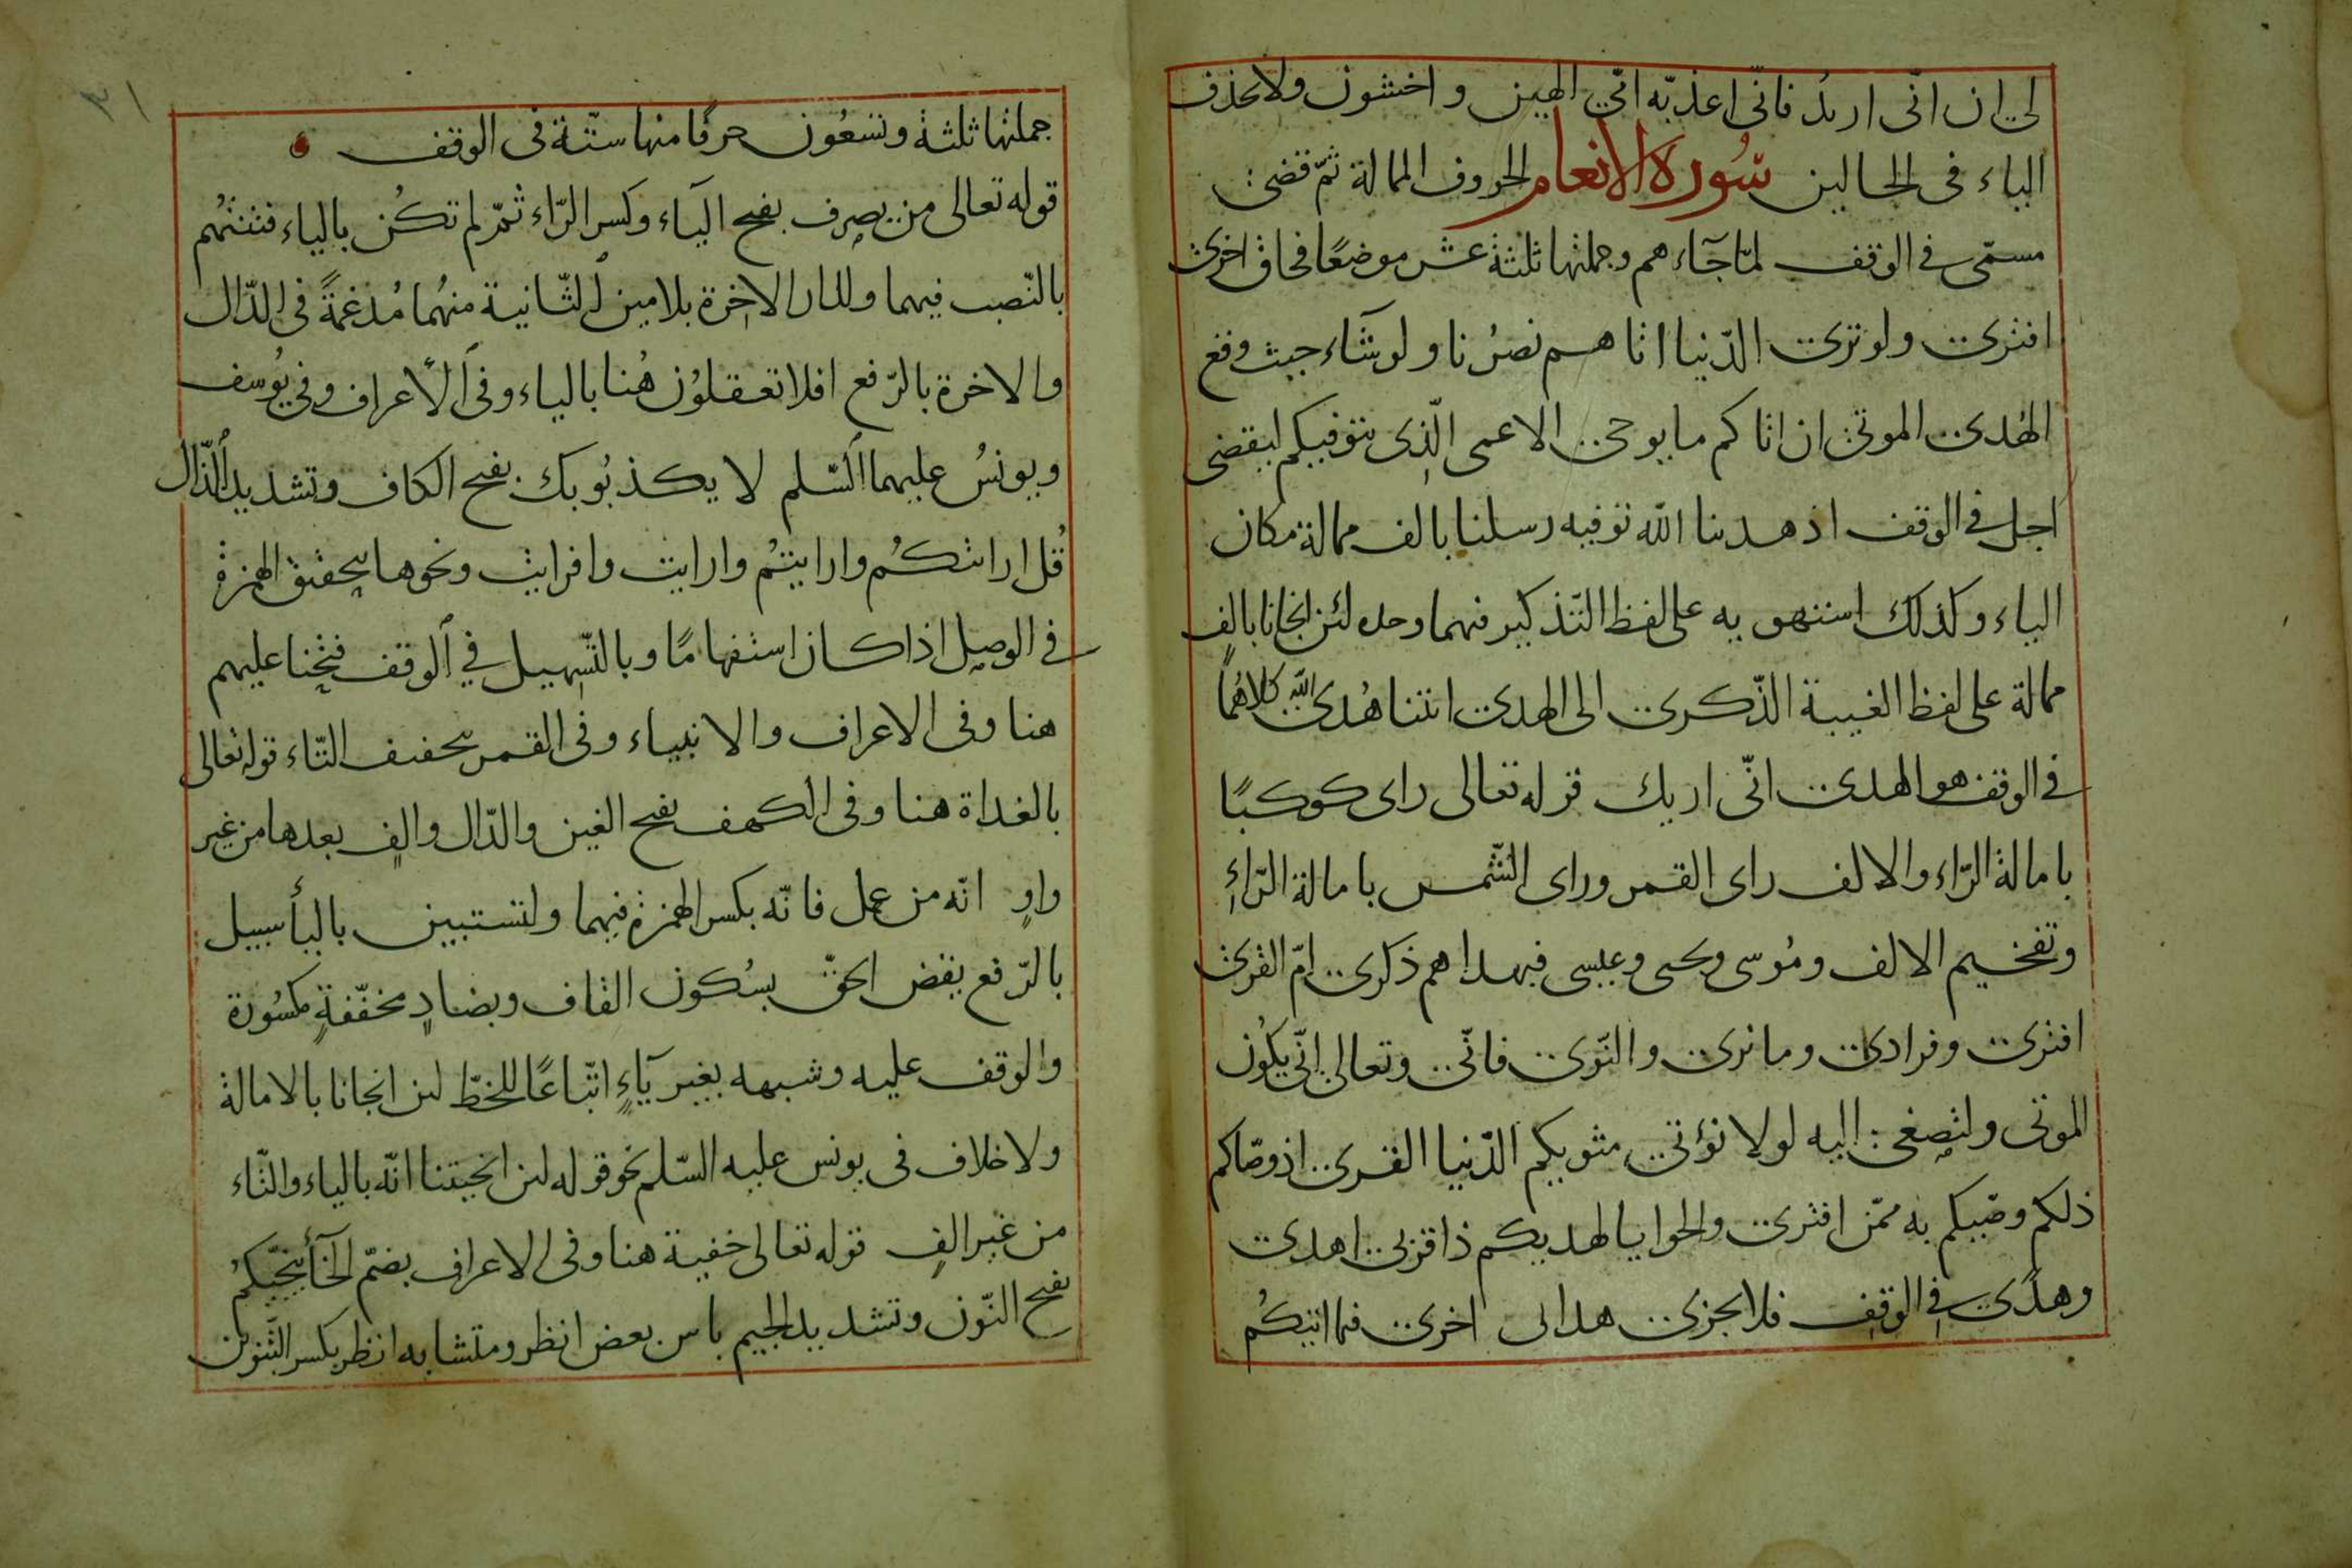 لي ان انّى اريدُ فانّى اعذبّه امّى الهين واخشون ولا يحذف
الياء فى الحالين سُورة الانعام الحروف الممالة ثمّ قضى
مسمّى فى الوقف لمّا جآءهم وجملتها ثلثة عشر موضعًا فحاق اخرى
افترى ولو ترى الدّنيا اتاهم نصرُنا ولو شآء حيث وقع
الهُدى الموتى ان اتاكم ما يوحى الاعمى الّذِى يتوفيكم ليقضى
اجل فى الوقف اذ هدينا الله توفيه رسلنا بالف ممالة مكان
الياء وكذلك استهويه على لفظ التّذكير فيهما وحده لئن انجانا بالفٍ
ممالة على لفظ الغيبة الذّكرى الى الهدى ائتنا هُدى الله كلاهُما
فى الوقف هو الهدى انّى اريك قوله تعالى راى كوكبًا
بامالة الرّاء والالف راى القمر وراى الشّمس بامالة الرّاءِ
وتفخيم الالف ومُوسى ويحيى وعيسى فبهداهم ذكرى امّ القرى
افترى وفرادى وما نرى والنّوى فانّى وتعالى انّى يكُون
الموتى ولتصغى اليه لولا نؤتى مثويكم الدّنيا القرى اذ وصّاكم
ذلكم وصّيكم به ممّن افترى والحوايا لهديكم ذا قربى اهدى
وهدًى فى الوقف فلا يجزى هدانى اخرى فما اتيكُم
جملتها ثلثة وتسعُون حرفًا منها ستّة فى الوقف
قوله تعالى من يصرف بفتح اليآء وكسر الرّاء ثمّ لم تكُن بالياء فتنتهُم
بالنّصب فيهما وللدار الاخِرة بلامين الثّانية منهُما مُدغمةً فى الدّال
والاخرة بالرّفع افلا تعقلوُن هُنا بالياء وفى الاعراف وفى يوُسف
ويونسُ عليهما السّلم لا يكذبُوبك بفتح الكاف وتشديد الذّال
قُل ارايتكُم وارايتُم وارايت وافرايت ونحوها بتحقيق الهمزة
فى الوصِل اذا كان استفهامًا وبالتّسهيل فى الوقف فتحنا عليهم
هنا وفى الاعراف والانبياء وفى القمر بتخفيف التّاء قوله تعالى
بالغداة هنا وفى الكهف بفتح الغين والدّال والفٍ بعدها من غير
واوٍ انّه من عمل فانّه بكسر الهمزة فيهما ولتستبين باليأ سبيل
بالرّفع يقض الحقّ بسُكون القاف وبضادٍ مخفّفةٍ مكسُورة
والوقف عليه وشبهه بغير يآءٍ اتّباعًا للخطّ لئن انجانا بالامالة
ولا خلاف فى يونس عليه السّلم نحو قوله لئن انجيتنا انّه بالياء والتّاء
من غير الفٍ قوله تعالى خفية هنا وفى الاعراف بضمّ الخآ ينجّيكمُ
بفتح النّون وتشديد الجيم باس بعض انظر ومتشابه انظر بكسر التّنوين